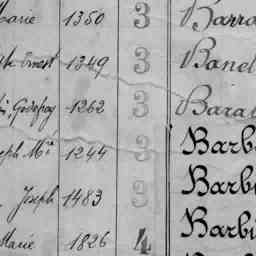 Marie 1350 3 Barra
Ernest 1349 3 Banel
Godefroy 1262 3 Bara
Joseph Mie 1244 3 Barb
Joseph 1483 3 Barbi
Marie 1826 4 Barbi